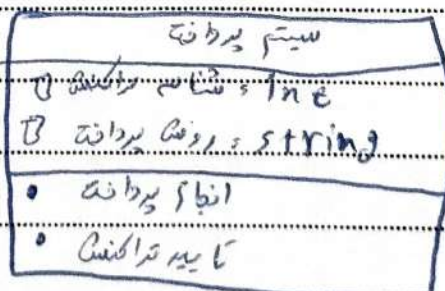 سیستم پرداخت
شناسه تراکنش : int
روش پرداخت : string
• انجام پرداخت
• تایید تراکنش